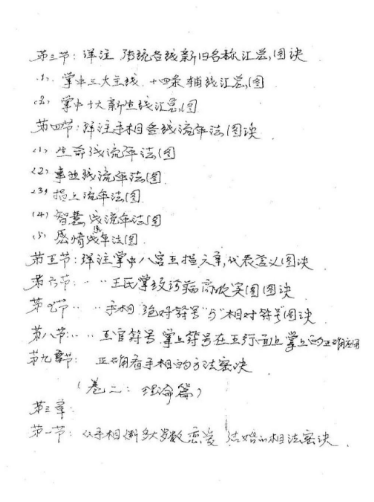 第三节：详注 传统各线新旧名称汇总,图诀
(1)、掌中三大主线、十四条辅线汇总,图
(2)、掌中十大新生线汇总图
第四节：详注手相各线流年法,图诀
(1) 生命线流年法图
(2) 事业线流年法图
(3) 指上流年法图
(4) 智慧线流年法图
(5) 感情线年法图
第五节：详注掌中八宫五指六章,代表意义图诀
第六节：〃〃王氏掌纹诊病高级实图图诀
第七节〃〃手相绝对符号"与"相对符号"图诀
第八节：〃〃五官符号 掌上符号在五行 掌上的正确
第九章节 正确看手相的方法密诀
(卷二：理命篇)
第三章：
第一节：从手相断多大岁数恋爱 结婚的相法密诀